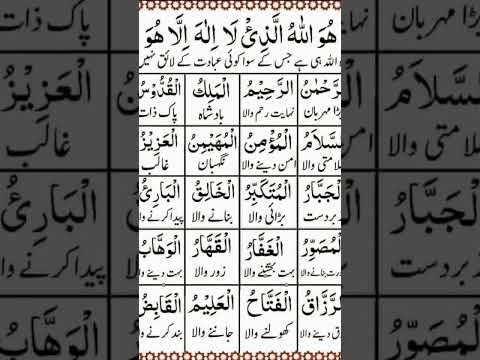 هُوَ اللهُ الَّذِيْ لَا اِلٰهَ اِلَّا هُوَ
اللہ ہی ہے جس کے سوا کوئی عبادت کے لائق نہیں
الرَّحْمٰنُ الرَّحِيْمُ الْمَلِكُ الْقُدُّوْسُ
بڑا مہربان نہایت رحم والا بادشاہ پاک ذات
السَّلَامُ الْمُؤْمِنُ الْمُهَيْمِنُ الْعَزِيْزُ
سلامتی والا امن دینے والا نگہبان غالب
الْجَبَّارُ الْمُتَكَبِّرُ الْخَالِقُ الْبَارِئُ
زبردست بڑائی والا بنانے والا پیدا کرنے والا
الْمُصَوِّرُ الْغَفَّارُ الْقَهَّارُ الْوَهَّابُ
صورت بنانے والا بہت بخشنے والا زور والا بہت دینے والا
الرَّزَّاقُ الْفَتَّاحُ الْعَلِيْمُ الْقَابِضُ
رزق دینے والا کھولنے والا جاننے والا بند کرنے والا